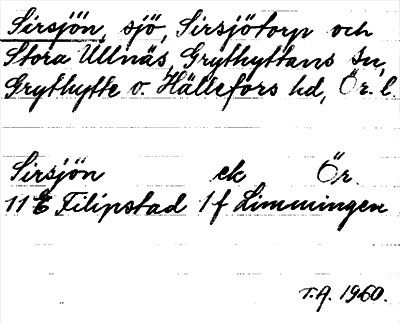 Sirsjön, sjö, Sirsjötorp och
Stora Ullnäs, Grythyttans sn,
Grythytte o. Hällefors hd, Ör. l.
Sirsjön ek Ör.
11 E Filipstad 1 f Limmingen
T.A. 1960.